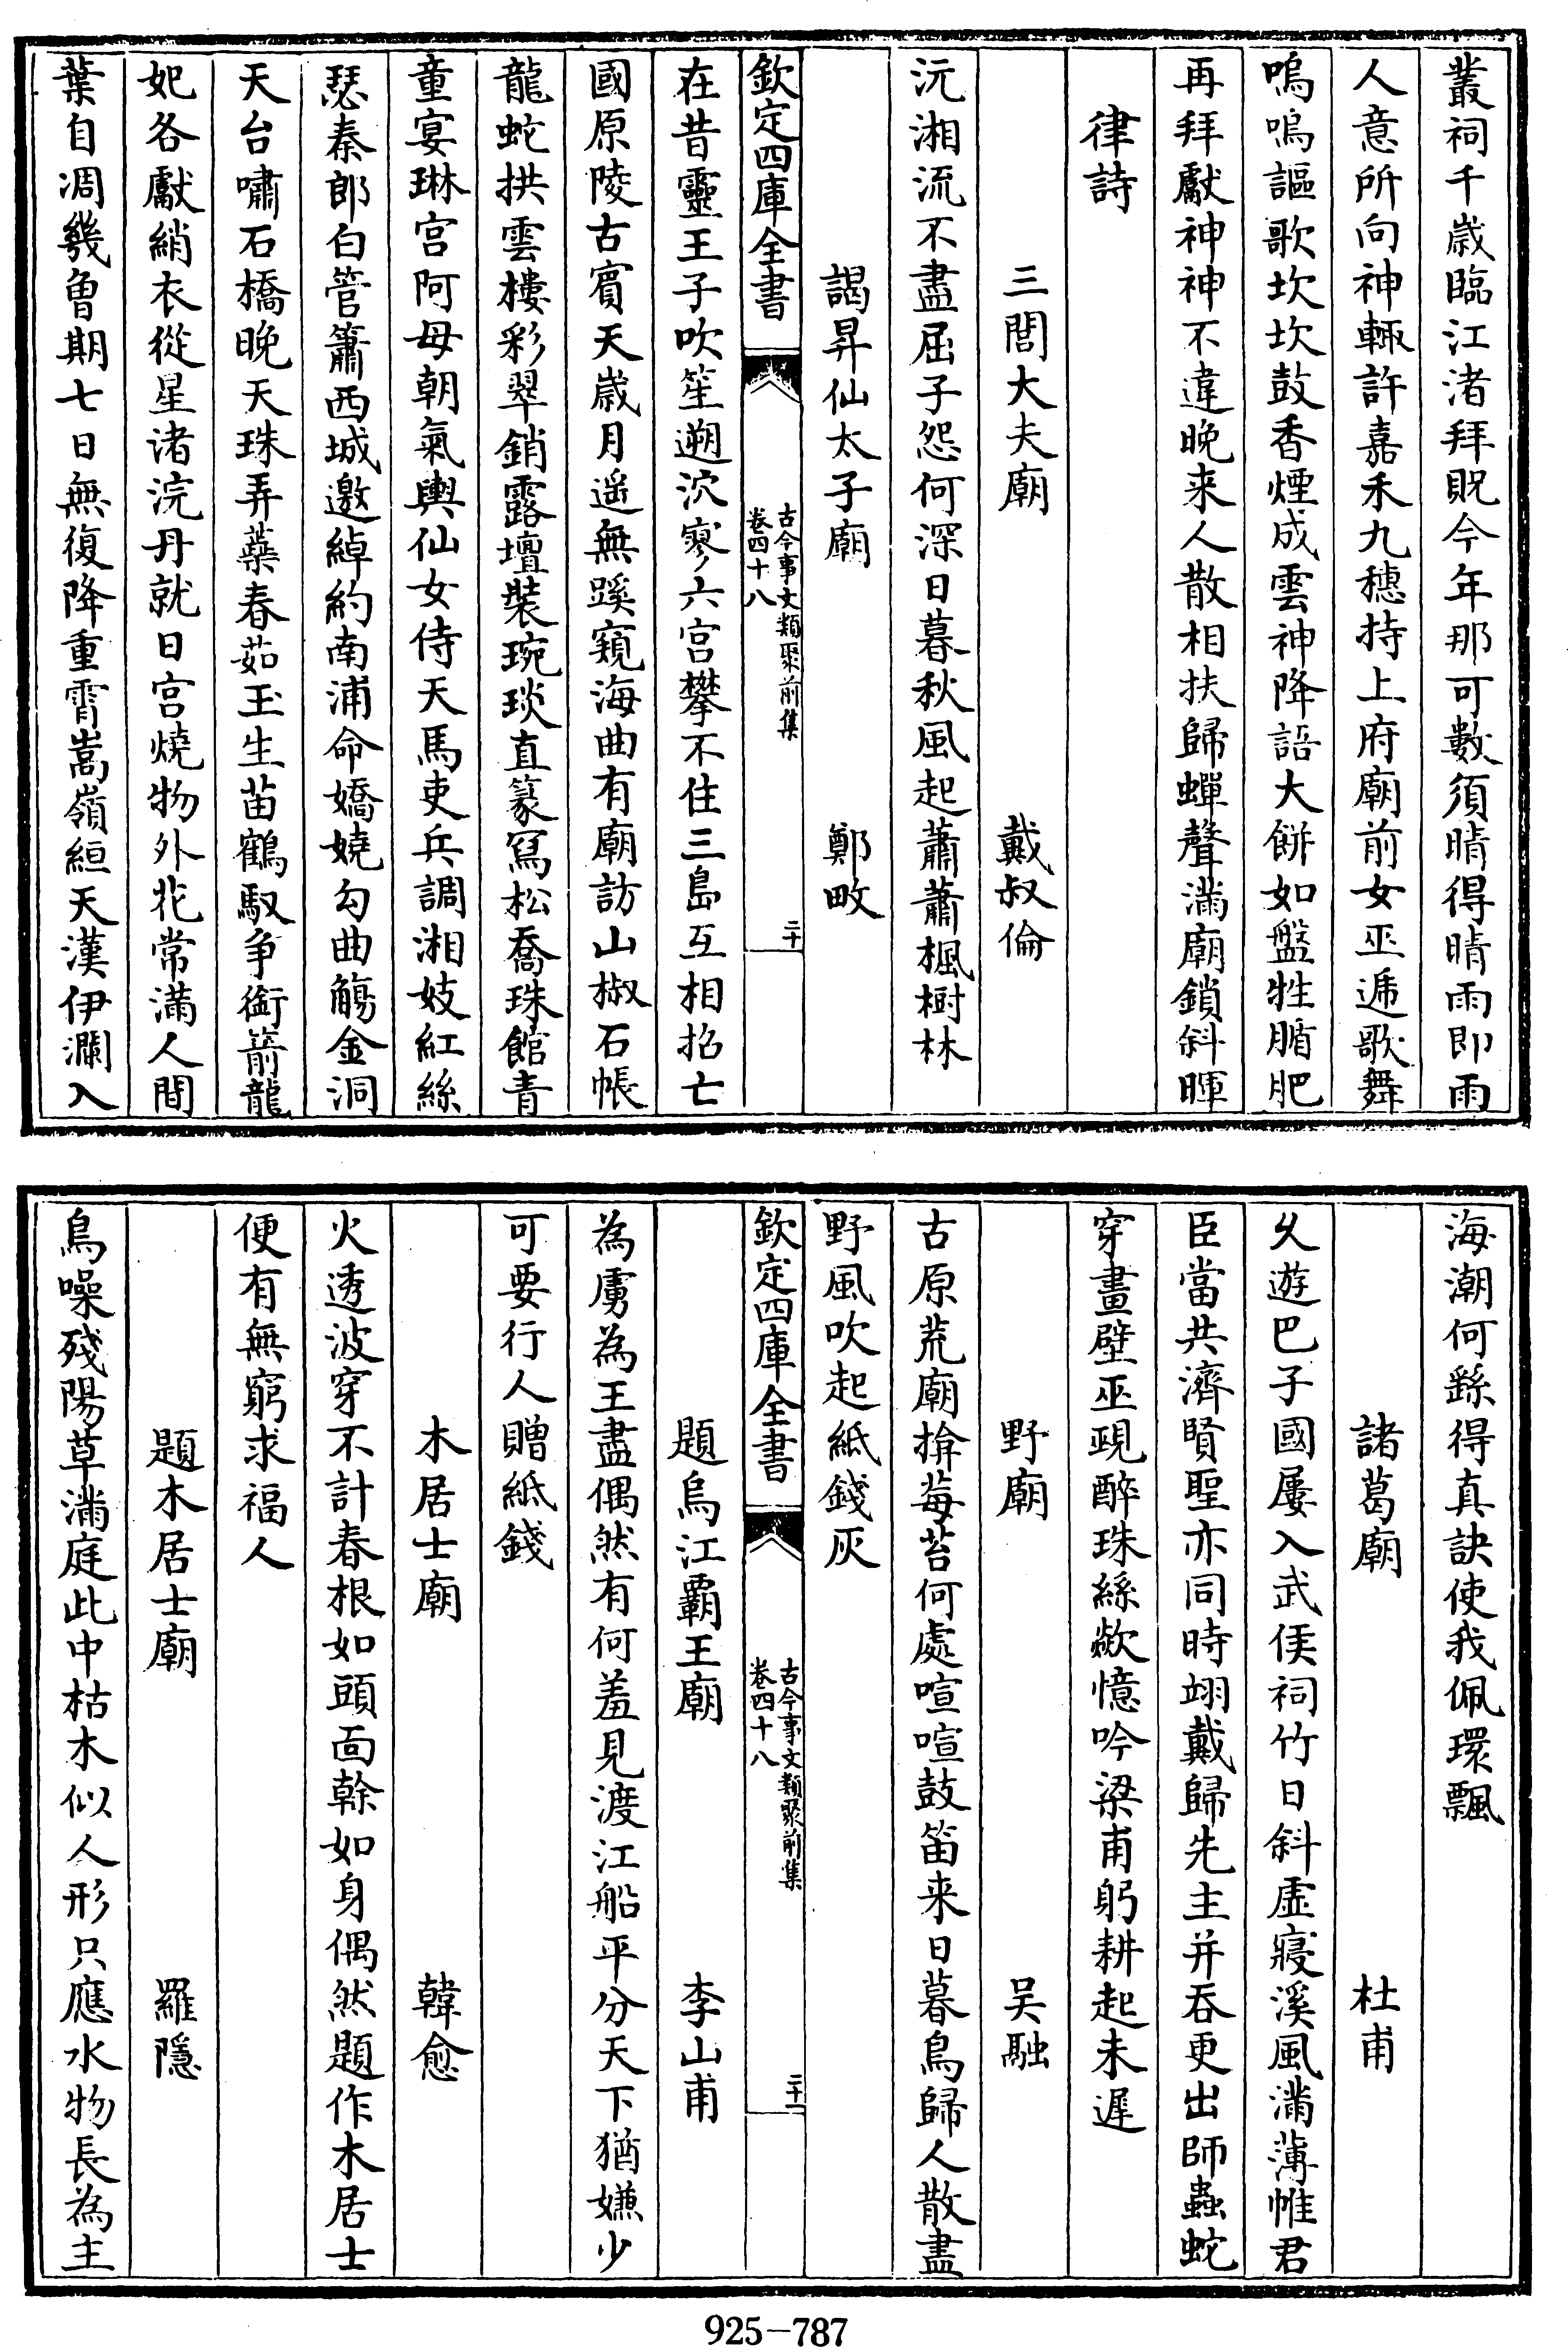 叢祠千嵗臨江渚拜貺今年那可數須晴得晴雨即雨
人意所向神輙許嘉禾九穗持上府廟前女巫遞歌舞
嗚嗚謳歌坎坎鼓香煙成雲神降語大餅如盤牲腯肥
再拜獻神神不違晚来人散相扶歸蟬聲滿廟鎖斜暉
律詩
三閭大夫廟 戴叔倫
沅湘流不盡屈子怨何深日暮秋風起蕭蕭楓樹林
謁昇仙太子廟 鄭畋
欽定四庫全書 古今事文類聚前集 卷四十八 二十
在昔靈王子吹笙遡泬寥六宫攀不住三島互相招亡
國原陵古賔天嵗月遥無蹊窺海曲有廟訪山椒石帳
龍蛇拱雲樓彩翠銷露壇裝琬琰直篆冩松喬珠館青
童宴琳宫阿母朝氣輿仙女侍天馬吏兵調湘妓紅絲
瑟秦郎白管簫西城邀綽約南浦命嬌嬈勾曲觴金洞
天台嘯石橋晚天珠弄蘂春茹玉生苗鶴馭争銜箭龍
妃各獻綃衣從星渚浣丹就日宫燒物外花常滿人間
葉自凋幾魯期七日無復降重霄嵩嶺絙天漢伊瀾入
海潮何繇得真訣使我佩環飄
諸葛廟 杜甫
久遊巴子國屢入武侯祠竹日斜虚寢溪風滿薄帷君
臣當共濟賢聖亦同時翊戴歸先主并吞更出師蟲蛇
穿畫壁巫覡醉珠絲歘憶吟梁甫躬耕起未遲
野廟 吴融
古原荒廟揜莓苔何處喧喧鼓笛来日暮鳥歸人散盡
野風吹起紙錢灰
欽定四庫全書 古今事文類聚前集 卷四十八 二十一
題烏江覇王廟 李山甫
為虜為王盡偶然有何羞見渡江船平分天下猶嫌少
可要行人贈紙錢
木居士廟 韓愈
火透波穿不計春根如頭面幹如身偶然題作木居士
便有無窮求福人
題木居士廟 羅隱
鳥噪殘陽草滿庭此中枯木似人形只應水物長為主
925-787